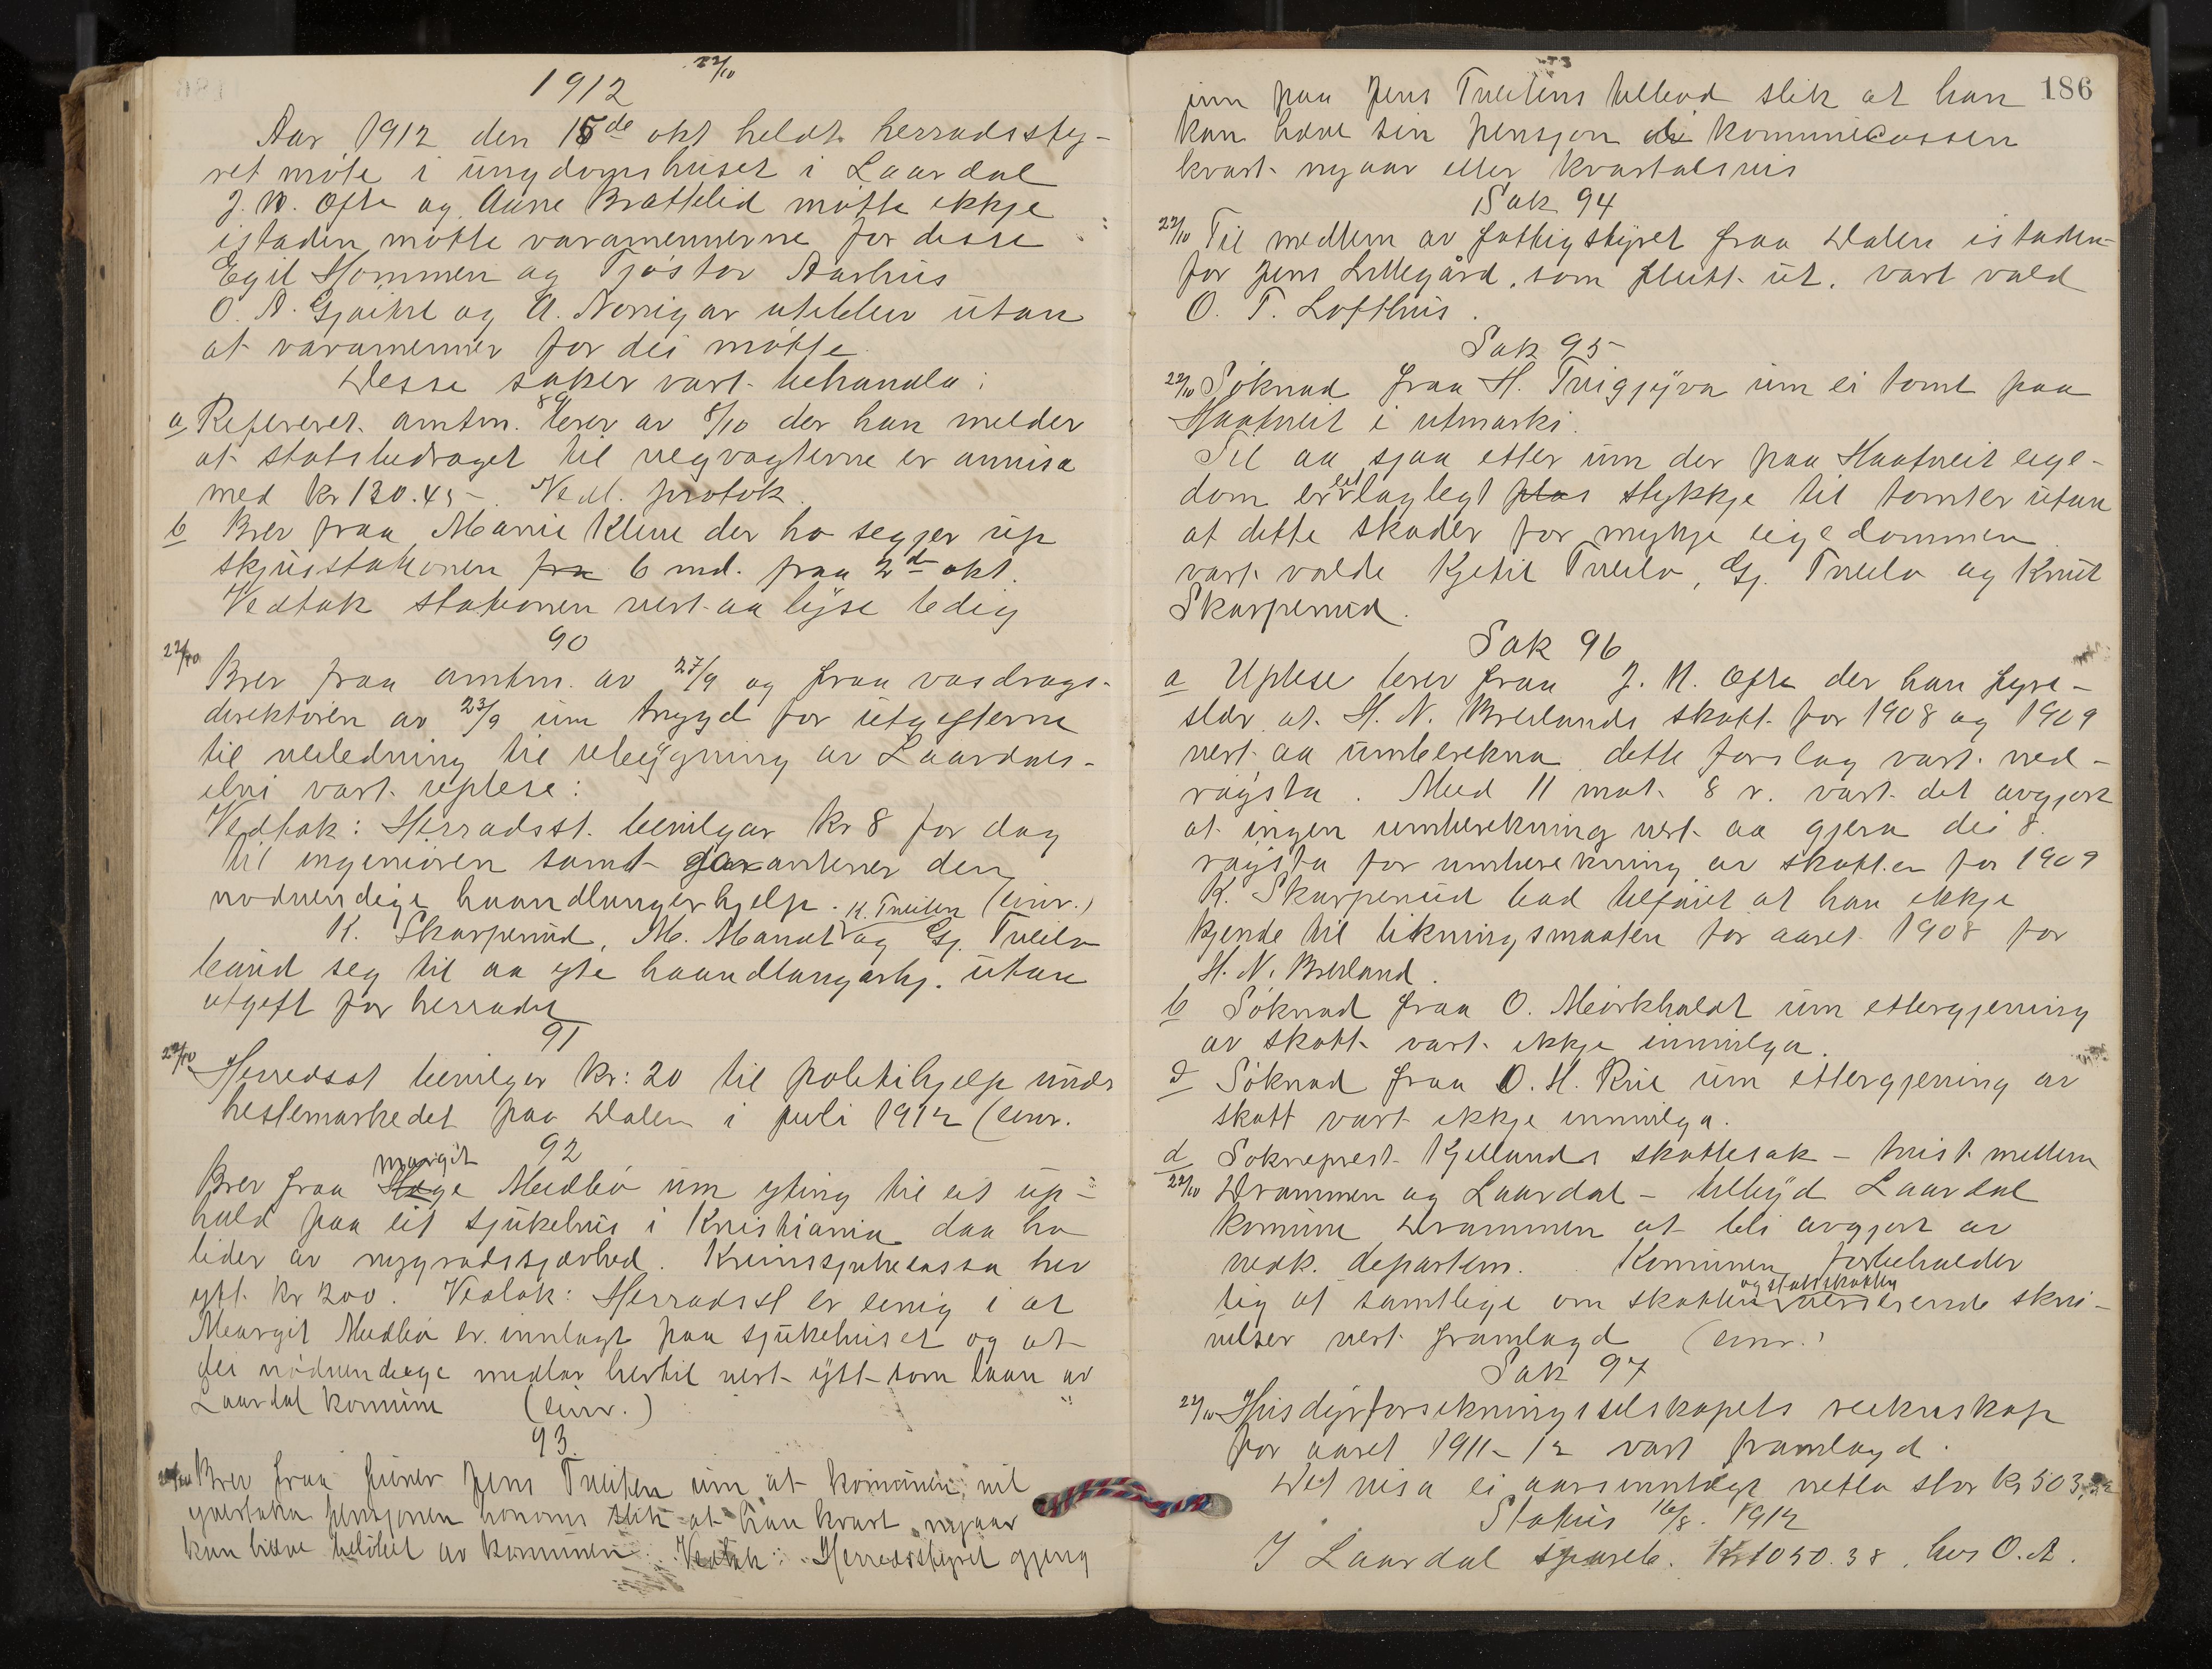 1912 22/10
Aar 1912 den 15de okt heldt herradssty-
ret möte i ungdomshuset i Laardal
J. N. Ofte og Aane Brattelid mötte ikkje
istaden mötte varamennerne for desse
Egil Hommen og Tjöstov Aarhus
O. A. Gjøihre og A. Norrigar uteblev utan
at varamenner for dei mötte.
Desse saker vart behandla:
89
a Referert amtm. brev av 8/10 der han melder
at statsbidraget til vegvagterne er anvisa
med kr 130.45. Vedl. protok.
b Brev fraa Marie Klove der ho segjer up
skjusstationen fra 6 md. fraa 2d okt.
Vedtak stationen vert aa lyse ledig
90
22/10 Brev fraa amtm. av 27/9 og fraa vasdrags-
direktören av 23/9 um trygd for utgifterne
til veiledning til utbygning av Laardals-
elvi vart uplese:
Vedtak: Herradsst. bevilgar kr 8 for dag
til ingeniören samt garanterer den
nødvendige haandlangerhjelp. (einr.)
K. Skarperud, M. Mandt K. Tveiten og Gj. Tveito
baud seg til aa yte haandlangarhj. utan
utgift for herradet
91
22/10 Herredsst bevilger kr: 20 til politihjelp under
hestemarkedet paa Dalen i juli 1912 (einr.
92
Brev fraa Hæge margit Midbö um yting til eit up-
hald paa eit sjukehus i Kristiania daa ho
lider av nygradssjaarhed. Krinssjukekassa hev
ytt kr 200. Vedtak: Herradsst er einig i at
Margit Midbö er innlagt paa sjukehuset og at
dei nödvendige midlar hertil vert ytt som laan av
Laardal komune (einr.)
93.
22/10 Brev fraa furer Jens Tveiten um at komunen vil
yvertaka pensjonen honoms slik at han kvart nyaar
kan hæve belöbet av komunen. Vedtak: Herredsstyret gjeng
186
inn paa Jens Tveitens tilbod slik at han
kan hæve sin pensjon di kommunecassen
kvart nyaar eller kvartalsvis
Sak 94
22/10 Til medlem av fattigstyret fraa Dalen istaden
for Jens Lillegård, som flutt ut, vart vald
O. T. Lofthus.
Sak 95
22/10 Söknad fraa H. Tvigyva um ei tomt paa
Haatveit i utmarki.
Til aa sjaa etter um der paa Haatveit eige-
dom er eit laglegt plas stykkje til tomter utan
at dette skader for mykje eigedommen
vart valde Kjetil Tveito, Gj. Tveito og Knut
Skarperud.
Sak 96
a Uplese brev fraa J. N. Ofte der han fyre-
slær at H. N. Breilands skatt for 1908 og 1909
vert aa umberekna dette forslag vart ned-
röysta. Med 11 mot 8 r. vart det avgjort
at ingen umberekning vert aa gjera dei 8
röysta for umberekning av skatten for 1909
K. Skarperud bad tilföiet at han ikkje
kjende til likningsmaaten for aaret 1908 for
H. N. Breiland.
b Söknad fraa O. Mörkhaldt um ettergjevning
av skatt vart ikkje innvilga.
c Söknad fraa O. H. Rue um ettergjevning av
skatt vart ikkje innvilga.
d Sokneprest Kjellands skattesak - tvist mellem
22/10 Drammen og Laardal - tilbyd Laardal
komune Drammen at bli avgjort av
vedk. departem. Komunen forbeholder
sig at samtlege om skatten og statsskatten verserende skri-
velser vert framlagd (einr.)
Sak 97
22/10 Husdyrforsekringsselskapets reikneskap
for aaret 1911-12 vart framlagd.
Det visa ei aarsinntægt netto stor kr 503,
Status 16/8. 1912
I Laardal spareb. Kr 1050.38. hos O. A.